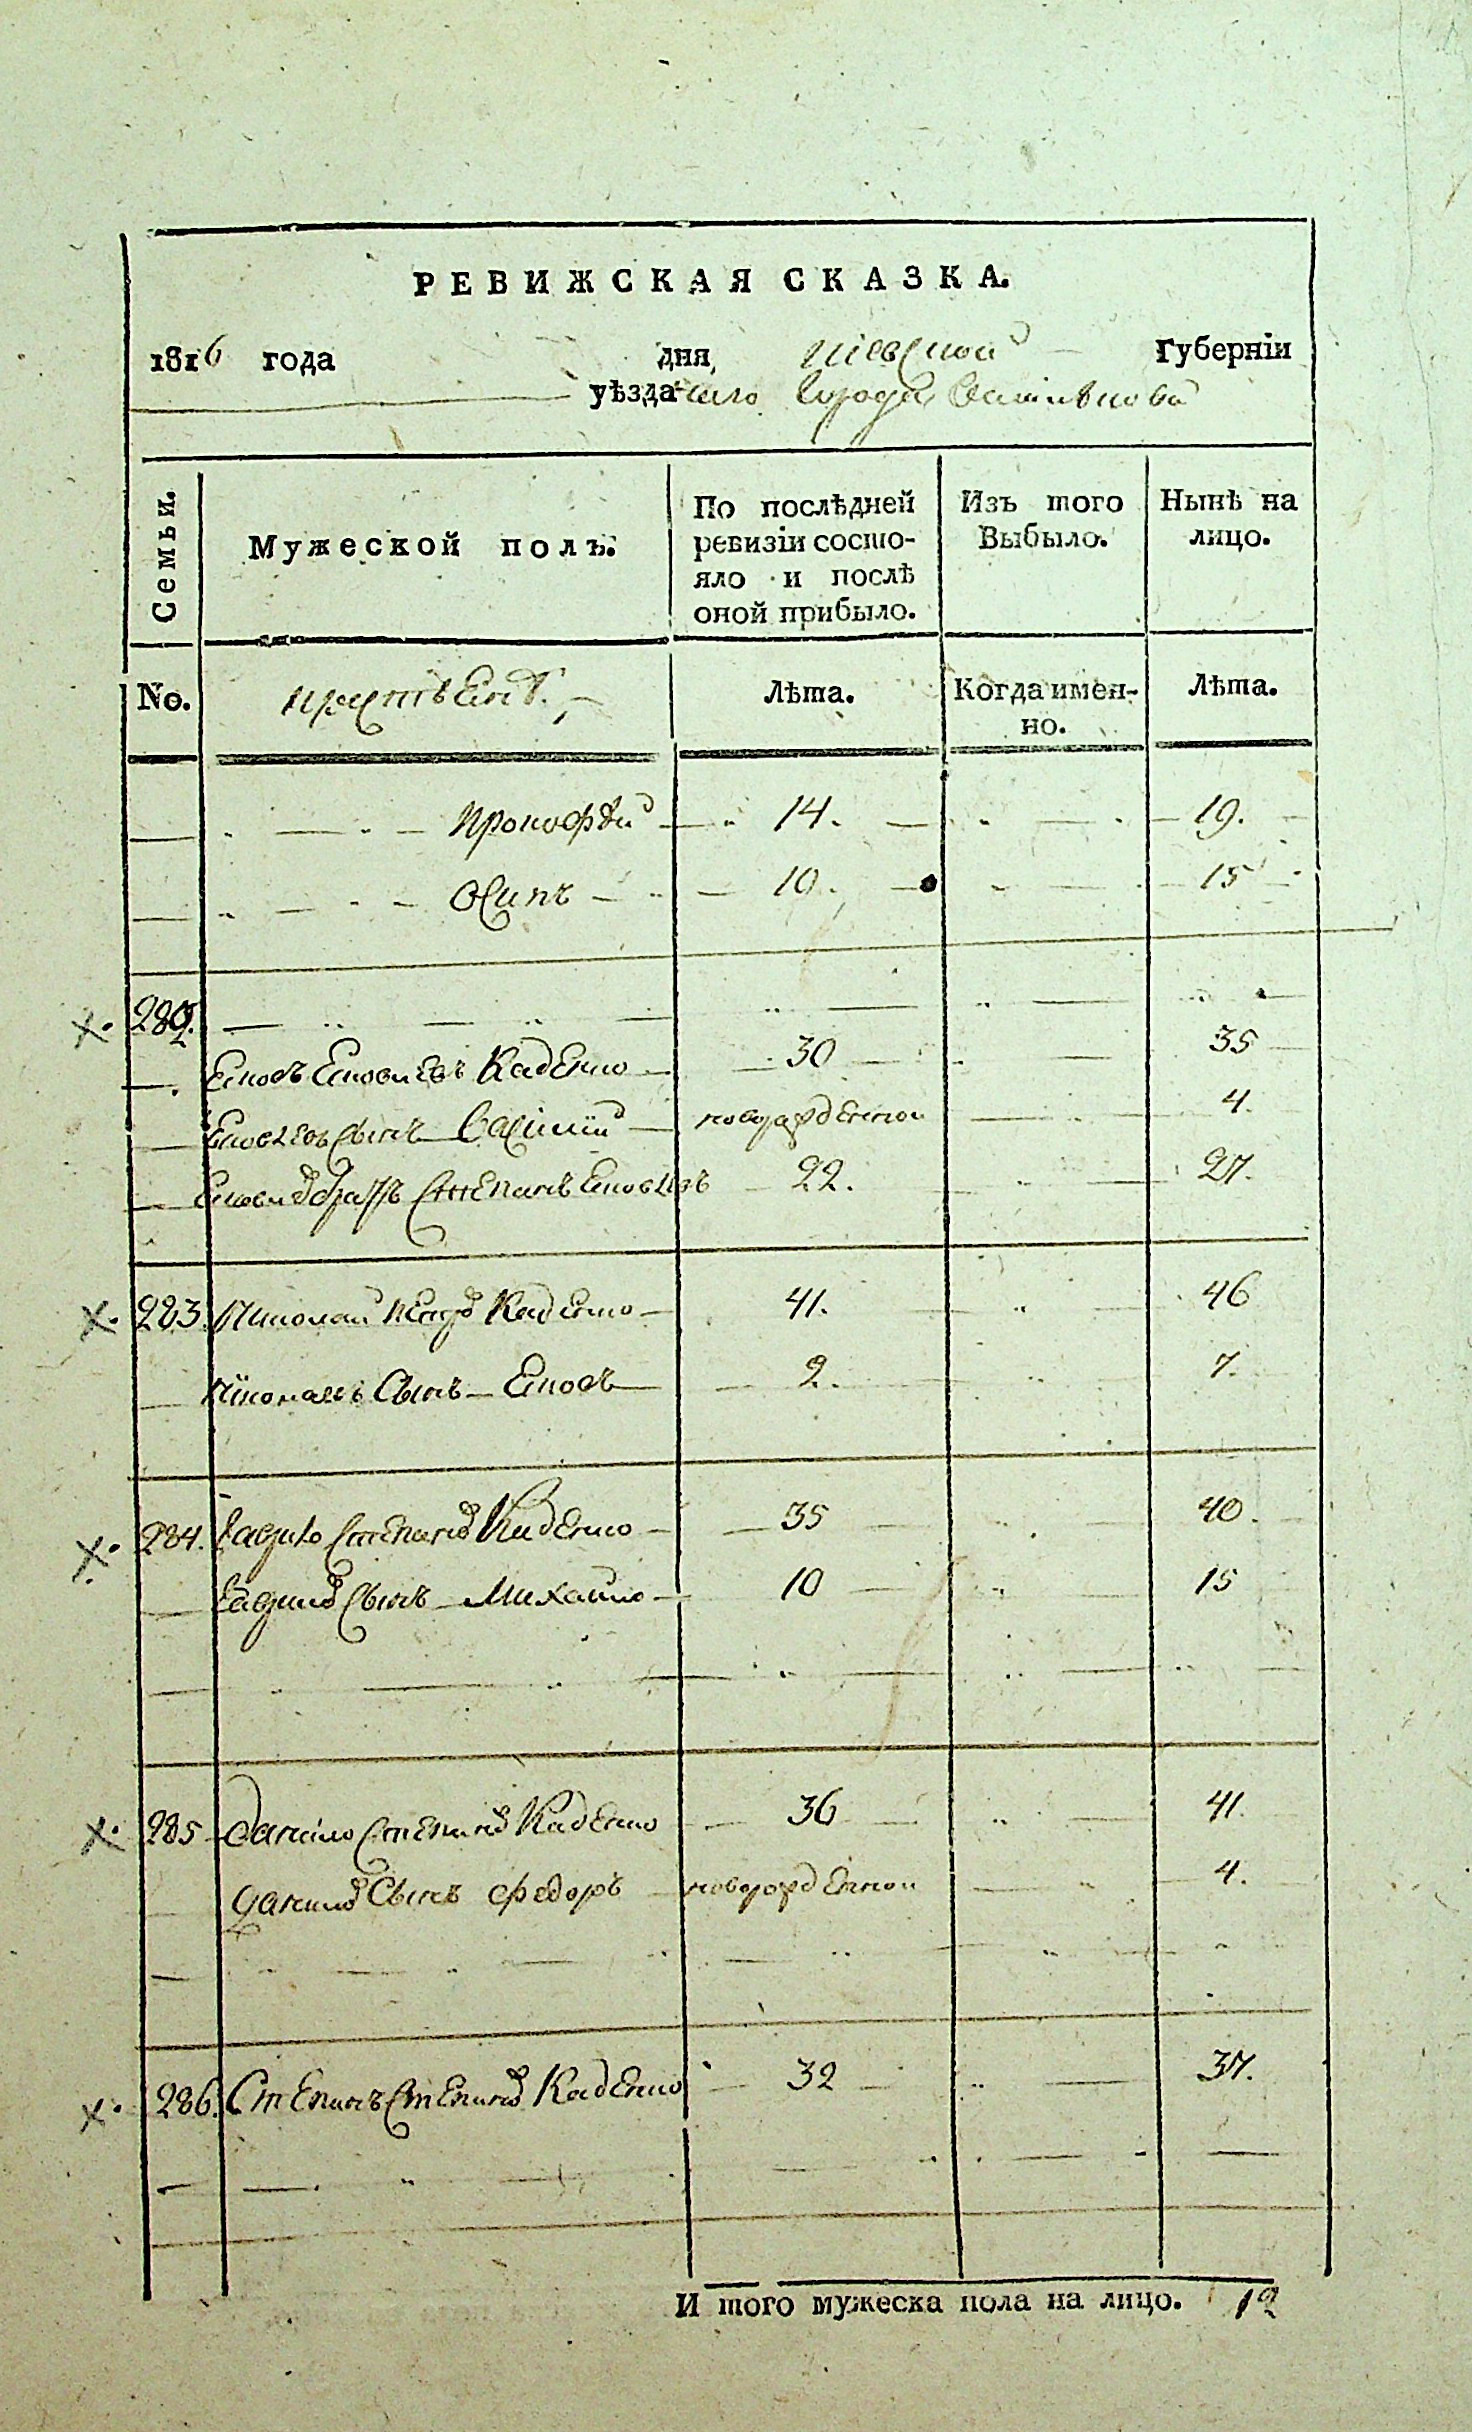 РЕВИЖСКАЯ СКАЗКА.
1816 года дня, Кіевской Губерніи
уѣзда города
Семьи.
Мужеской полъ.
По послѣдней ревизіи состо-
яло и послѣ
оной прибыло.
Изъ того
Выбыло.
Нынѣ на
лицо.
No.
Лѣта.
Когда имен-
но.
Лѣта.
Прокофей 14. 19.
Осипъ 10. 15
282.
Яковъ Яковлевъ Каденко 30 35
Яковлевъ Сынъ Василий новорожденной 4.
Яковлева братъ Степанъ Яковлевъ 22. 27.
283. Николай Каденко 41. 46
Николаевъ Сынъ Яковъ 2. 7.
284. Гаврило Степановъ Каденко 35 40.
Гавриловъ Сынъ Михайло 10 15
285 Данило Степановъ Каденко 36 41.
Даниловъ Сынъ Федоръ новорожденной 4.
286. Степанъ Степановъ Каденко 32 37.
И того мужеска пола на лицо. 12